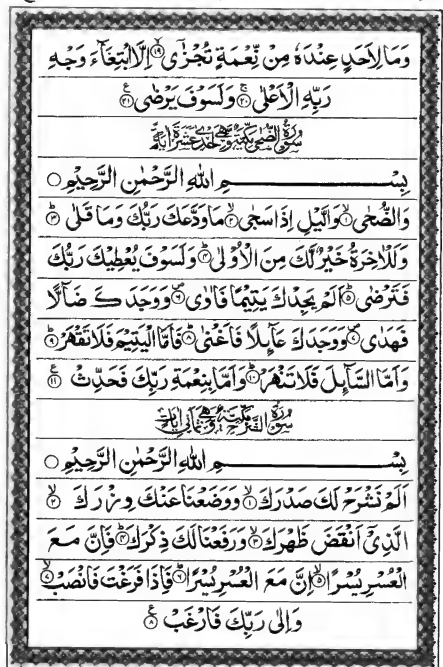 وَمَا لِاَحَدٍ عِنْدَهٗ مِنْ نِّعْمَةٍ تُجْزٰٓى ۙ﴿۱۹﴾ اِلَّا ابْتِغَآءَ وَجْهِ
رَبِّهِ الْاَعْلٰى ۚ﴿۲۰﴾ وَلَسَوْفَ يَرْضٰى ﴿۲۱﴾ ع
سُوْرَةُ الضُّحٰى مَكِّيَّةٌ وَّهِيَ اِحْدٰى عَشْرَةَ اٰيَةً
بِسْمِ اللّٰهِ الرَّحْمٰنِ الرَّحِيْمِ ○
وَالضُّحٰى ۙ﴿۱﴾ وَالَّيْلِ اِذَا سَجٰى ۙ﴿۲﴾ مَا وَدَّعَكَ رَبُّكَ وَمَا قَلٰى ؕ﴿۳﴾
وَلَلْاٰخِرَةُ خَيْرٌ لَّكَ مِنَ الْاُوْلٰى ؕ﴿۴﴾ وَلَسَوْفَ يُعْطِيْكَ رَبُّكَ
فَتَرْضٰى ؕ﴿۵﴾ اَلَمْ يَجِدْكَ يَتِيْمًا فَاٰوٰى ۪﴿۶﴾ وَوَجَدَكَ ضَآلًّا
فَهَدٰى ۪﴿۷﴾ وَوَجَدَكَ عَآئِلًا فَاَغْنٰى ؕ﴿۸﴾ فَاَمَّا الْيَتِيْمَ فَلَا تَقْهَرْ ؕ﴿۹﴾
وَاَمَّا السَّآئِلَ فَلَا تَنْهَرْ ؕ﴿۱۰﴾ وَاَمَّا بِنِعْمَةِ رَبِّكَ فَحَدِّثْ ﴿۱۱﴾ ع
بِسْمِ اللّٰهِ الرَّحْمٰنِ الرَّحِيْمِ ○
اَلَمْ نَشْرَحْ لَكَ صَدْرَكَ ۙ﴿۱﴾ وَوَضَعْنَا عَنْكَ وِزْرَكَ ۙ﴿۲﴾
الَّذِيْٓ اَنْقَضَ ظَهْرَكَ ۙ﴿۳﴾ وَرَفَعْنَا لَكَ ذِكْرَكَ ؕ﴿۴﴾ فَاِنَّ مَعَ
الْعُسْرِ يُسْرًا ۙ﴿۵﴾ اِنَّ مَعَ الْعُسْرِ يُسْرًا ؕ﴿۶﴾ فَاِذَا فَرَغْتَ فَانْصَبْ ۙ﴿۷﴾
وَاِلٰى رَبِّكَ فَارْغَبْ ﴿۸﴾ ع